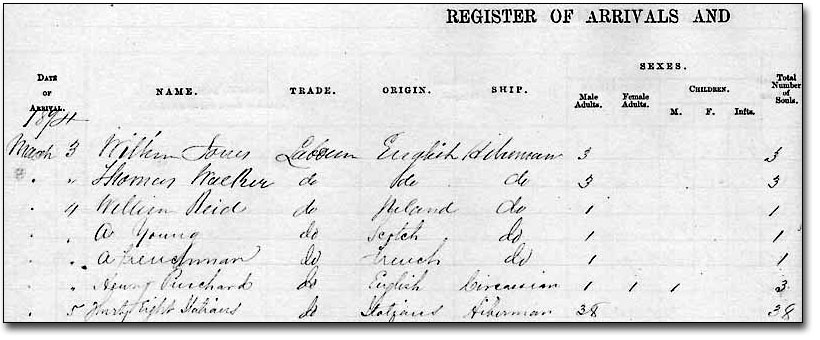 REGISTER OF ARRIVALS AND
SEXES.
DATE OF ARRIVAL. NAME. TRADE. ORIGIN. SHIP. Male Adults. Female Adults. CHILDREN. M. F. Infts. Total Number of Souls.
1874
March 3 Jones English Hibernian 3 3
" Thomas Walker do do do 3 3
4 William Reid do Ireland do 1 1
" A Young do Scotch do 1 1
" A Frenchman do French do 1 1
" Henry do English Circassian 1 1 1 3
5 Thirty Eight Italians do Italians Hibernian 38 38